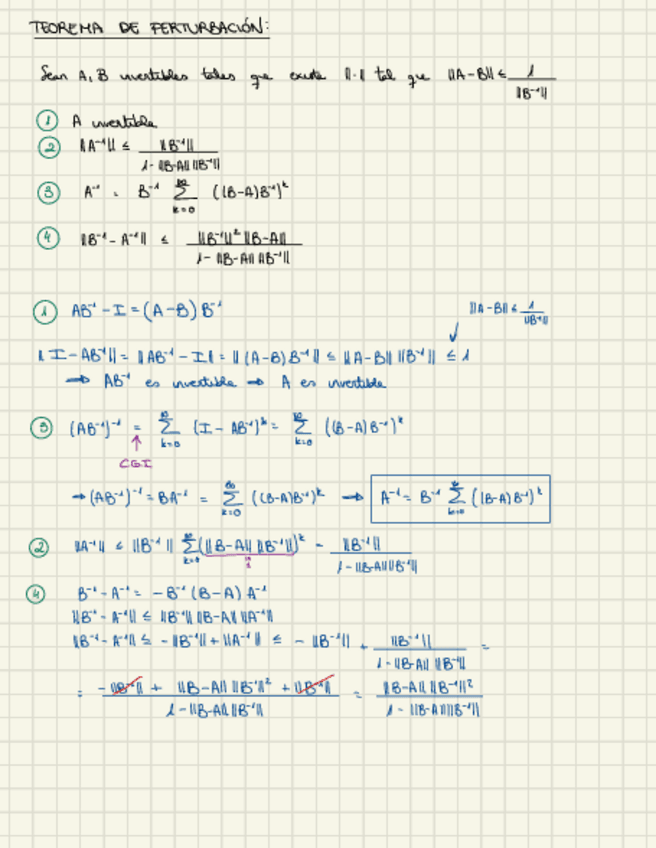 TEOREMA DE PERTURBACIÓN:
Sean A, B invertibles tales que existe ||·|| tal que ||A-B|| ≤ 1/||B⁻¹||
① A invertible
② ||A⁻¹|| ≤ ||B⁻¹|| / (1 - ||B-A|| ||B⁻¹||)
③ A⁻¹ = B⁻¹ ∑_{k=0}^{∞} ((B-A)B⁻¹)^k
④ ||B⁻¹ - A⁻¹|| ≤ ||B⁻¹||² ||B-A|| / (1 - ||B-A|| ||B⁻¹||)
① AB⁻¹ - I = (A-B) B⁻¹ ||A-B|| ≤ 1/||B⁻¹||
|| I - AB⁻¹|| = || AB⁻¹ - I|| = || (A-B) B⁻¹ || ≤ ||A-B|| ||B⁻¹|| ≤ 1
⇒ AB⁻¹ es invertible ⇒ A es invertible
③ (AB⁻¹)⁻¹ = ∑_{k=0}^{∞} (I - AB⁻¹)^k = ∑_{k=0}^{∞} ((B-A)B⁻¹)^k
↑
CGI
→ (AB⁻¹)⁻¹ = BA⁻¹ = ∑_{k=0}^{∞} ((B-A)B⁻¹)^k → A⁻¹ = B⁻¹ ∑_{k=0}^{∞} ((B-A)B⁻¹)^k
② ||A⁻¹|| ≤ ||B⁻¹|| ∑_{k=0}^{∞} (||B-A|| ||B⁻¹||)^k = ||B⁻¹|| / (1 - ||B-A|| ||B⁻¹||)
④ B⁻¹ - A⁻¹ = -B⁻¹ (B-A) A⁻¹
||B⁻¹ - A⁻¹|| ≤ ||B⁻¹|| ||B-A|| ||A⁻¹||
||B⁻¹ - A⁻¹|| ≤ - ||B⁻¹|| + ||A⁻¹|| ≤ - ||B⁻¹|| + ||B⁻¹|| / (1 - ||B-A|| ||B⁻¹||) =
= (-||B⁻¹|| + ||B-A|| ||B⁻¹||² + ||B⁻¹||) / (1 - ||B-A|| ||B⁻¹||) = ||B-A|| ||B⁻¹||² / (1 - ||B-A|| ||B⁻¹||)